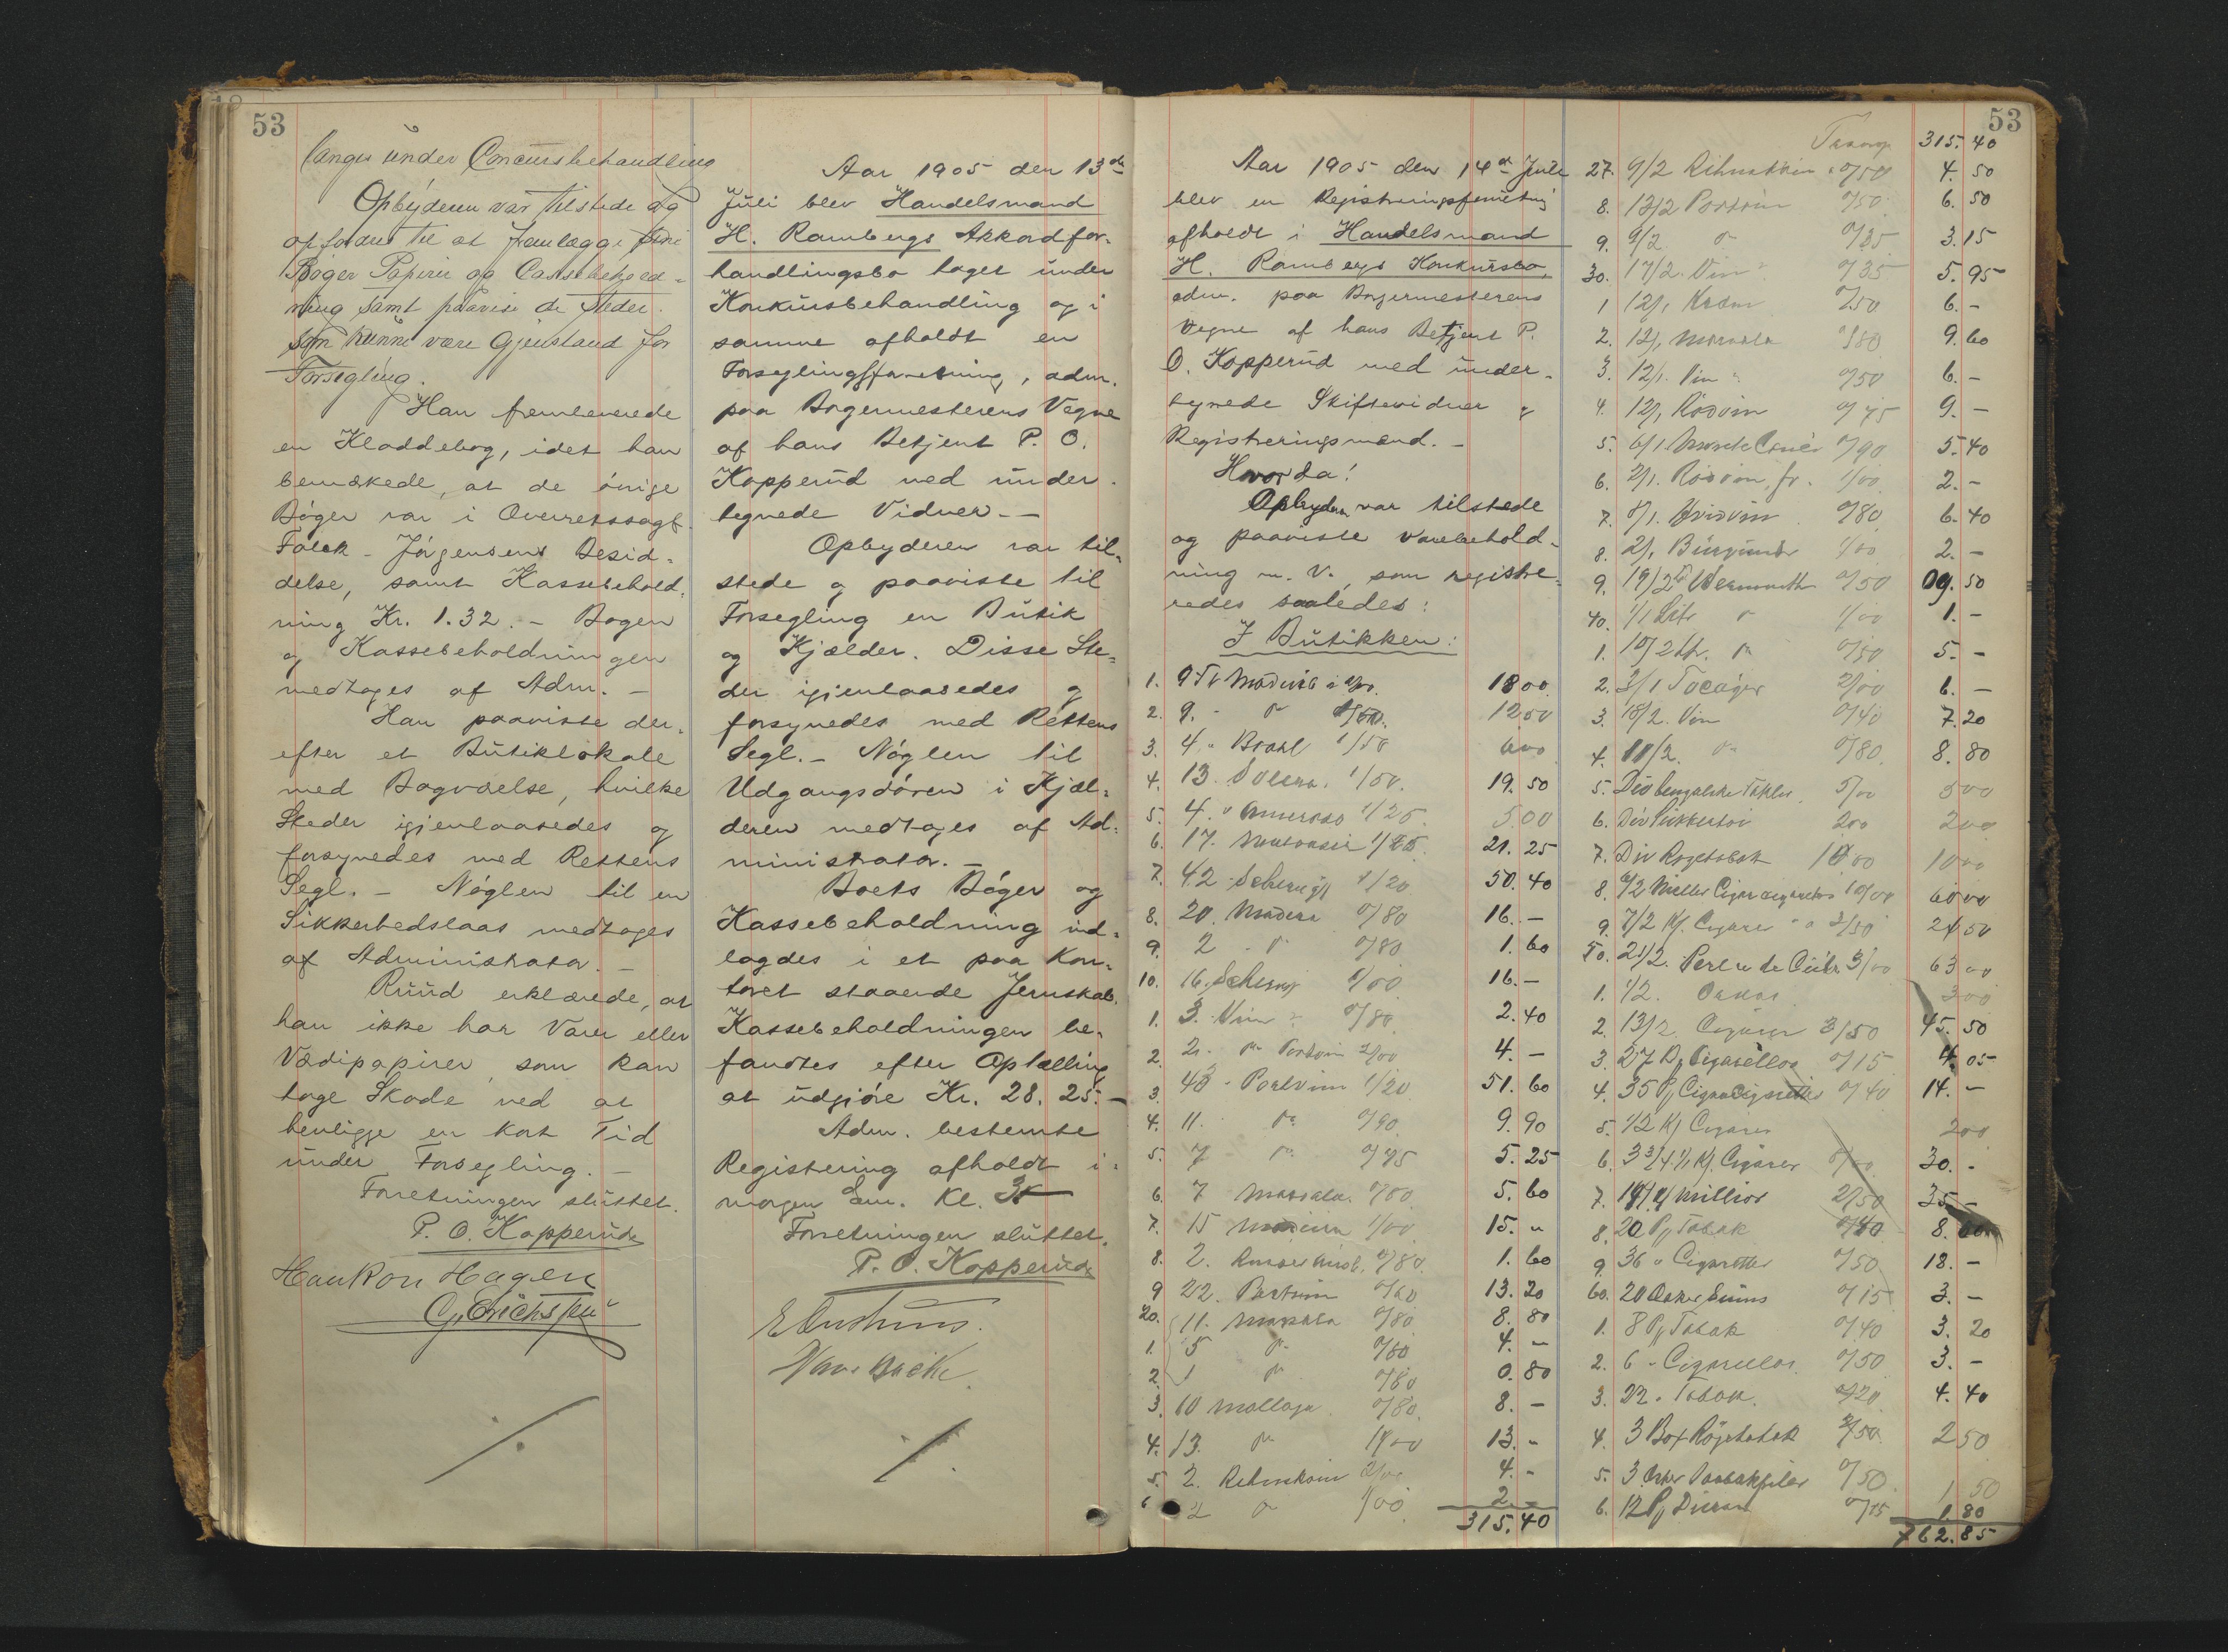 53
under Concursbehandling
Opbyderen var tilstede og
opfordret til at fremlægge sine
Bøger Papirer og Cassebehold-
ning samt paavise de Steder
som kunne være Gjenstand for
Forsegling.
Han fremleverede
en Kladdebog, idet han
bemærkede, at de øvrige
Bøger var i Overretssagf.
Falck-Jørgensens Besid-
delse, samt Kassebehold-
ning Kr. 1.32. - Bogen
og Kassebeholdningen
medtoges af Adm. -
Han paaviste der-
efter et Butiklokale
med Bagværelse, hvilke
Steder igjenlaasedes og
forsynedes med Rettens
Segl. - Nøglen til en
Sikkerhedslaas medtoges
af Administrator. -
Ruud erklærede, at
han ikke har Varer eller
Værdipapirer, som kan
tage Skade ved at
henligge en kort Tid
under Forsegling. -
Forretningen sluttet.
P. O. Kopperud
Haakon Hagen
Aar 1905 den 13de
Juli blev Handelsmand
H. Rambergs Akkordfor-
handlingsbo taget under
Konkursbehandling og i
samme afholdt en
Forseglingsforretning, adm.
paa Borgermesterens Vegne
af hans Betjent P. O.
Kopperud med under-
tegnede Vidner. -
Opbyderen var til-
stede og paaviste til
Forsegling en Butik
og Kjælder. Disse Ste-
der igjenlaasedes og
forsynedes med Rettens
Segl. - Nøglen til
Udgangsdøren i Kjæl-
deren medtoges af Ad-
ministrator. -
Boets Bøger og
Kassebeholdning ind-
lagdes i et paa Kon-
toret staaende Jernskab.
Kassebeholdningen be-
fandtes efter Optælling
at udgjøre Kr. 28.25. -
Adm. bestemte
Registrering afholdt i-
morgen Em. Kl.
Forretningen sluttet.
P. O. Kopperud
53
Aar 1905 den 14de Juli
blev en Registreringsforretning
afholdt i Handelsmand
H. Rambergs Konkursbo,
adm. paa Borgermesterens
Vegne af hans Betjent P.
O. Kopperud med under-
tegnede Skiftevidner og
Registreringsmænd. -
Hvorda!
Opbyderen var tilstede
og paaviste Varebehold-
ning m. v., som registre-
redes saaledes:
I Butikken:
1. 9 Fl Madeira a 2/00 18 00
2. 9. - do 12 50
3. 4. - 1/50 6 00
4. 13. Solera. 1/50. 19.50
5. 4. " Amoroso 1/25. 5.00
6. 17. Malvasir 1/25. 21.25
7. 42 - Scherry 1/20 50.40
8. 20. Madera 0/80 16. -
9. 2 - do 0/80 1.60
10. 16. Scherry 1/00 16. -
1. 3. Vin 0/80 2.40
2. 2. do Portvin 2/00 4. -
3. 43 - Portvin 1/20 51.60
4. 11. do 0/90 9.90
5. 7 do 0/75 5.25
6. 7 Marsala. 0/80 5.60
7. 15 Madeira 1/00 15. "
8. 2. 0/80 1.60
9 22. Portvin 0/60 13.20
20. 11. Marsala 0/80 8.80
1. 5 do 0/80 4. -
2. 1 do 0/80 0.80
3. 10 Mallaga 0/80 8. -
4. 13. do 1/00 13. -
5. 2. Rhinskvin 2/00 4. -
6 2 do 1/00 2. -
315.40
Transp. 315.40
27. 9/2 Rhinskvin a 0/50 4.50
8. 13/2 Portvin 0/50 6.50
9. 9/2 do 0/35 3.15
30. 17/2 Vin 0/35 5.95
1 12/1 0/50 6. -
2. 12/1 Marsala 0/80 9.60
3. 12/1. Vin 0/50 6. -
4. 12/1 Rødvin 0/75 9. -
5. 6/1 0/90 5.40
6. 2/1. Rødvin, fr. 1/00 2. -
7. 8/1. Hvidvin 0/80 6.40
8. 2/1 Burgunder 1/00 2. -
9. 19/2 Wermouth 0/50 09.50
40. 1/1 Litr do 1/00 1. -
1. 10/2 ltr. do 0/50 5. -
2. 3/1 Tocayer 2/00 6. -
3. 18/2. Vin 0/40 7.20
4. 11/2. do 0/80 8.80
5. Div bengalske 5/00 5 00
6. Div Sukkertøi 2 00 2 00
7. Div Røgetobak 10 00 10 00
8. 6/2 Miller 10/00 60 00
9. 7/2 Kj. Cigarer a 3/50 24 50
50. 21/2. Perla de Cuba 3/00 63 00
1. 1/2. 3 00
2. 13/2 Cigarer 3/50 45.50
3. 27 Pj Cigarellos 0/15 4.05
4. 35 Pj 0/40 14. -
5. 1/2 Kj Cigarer 2 00
6. 3 3/4 1/1 Kj. Cigarer 8/00 30. -
7. 2/50 35 -
8. 20 Pj Tobak 0/40 8.
9. 36 " Cigaretter 0/50 18. -
60. 20 Æsker 0/15 3. -
1. 8 Pj Tobak 0/40 3.20
2. 6 - Cigarellos 0/50 3. -
3. 22. Tobak. 0/20 4.40
4. 3 Box Røgetobak 2 50
5. 3 0/50 1 50
6. 12 Pj 0/15 1.80
762.85